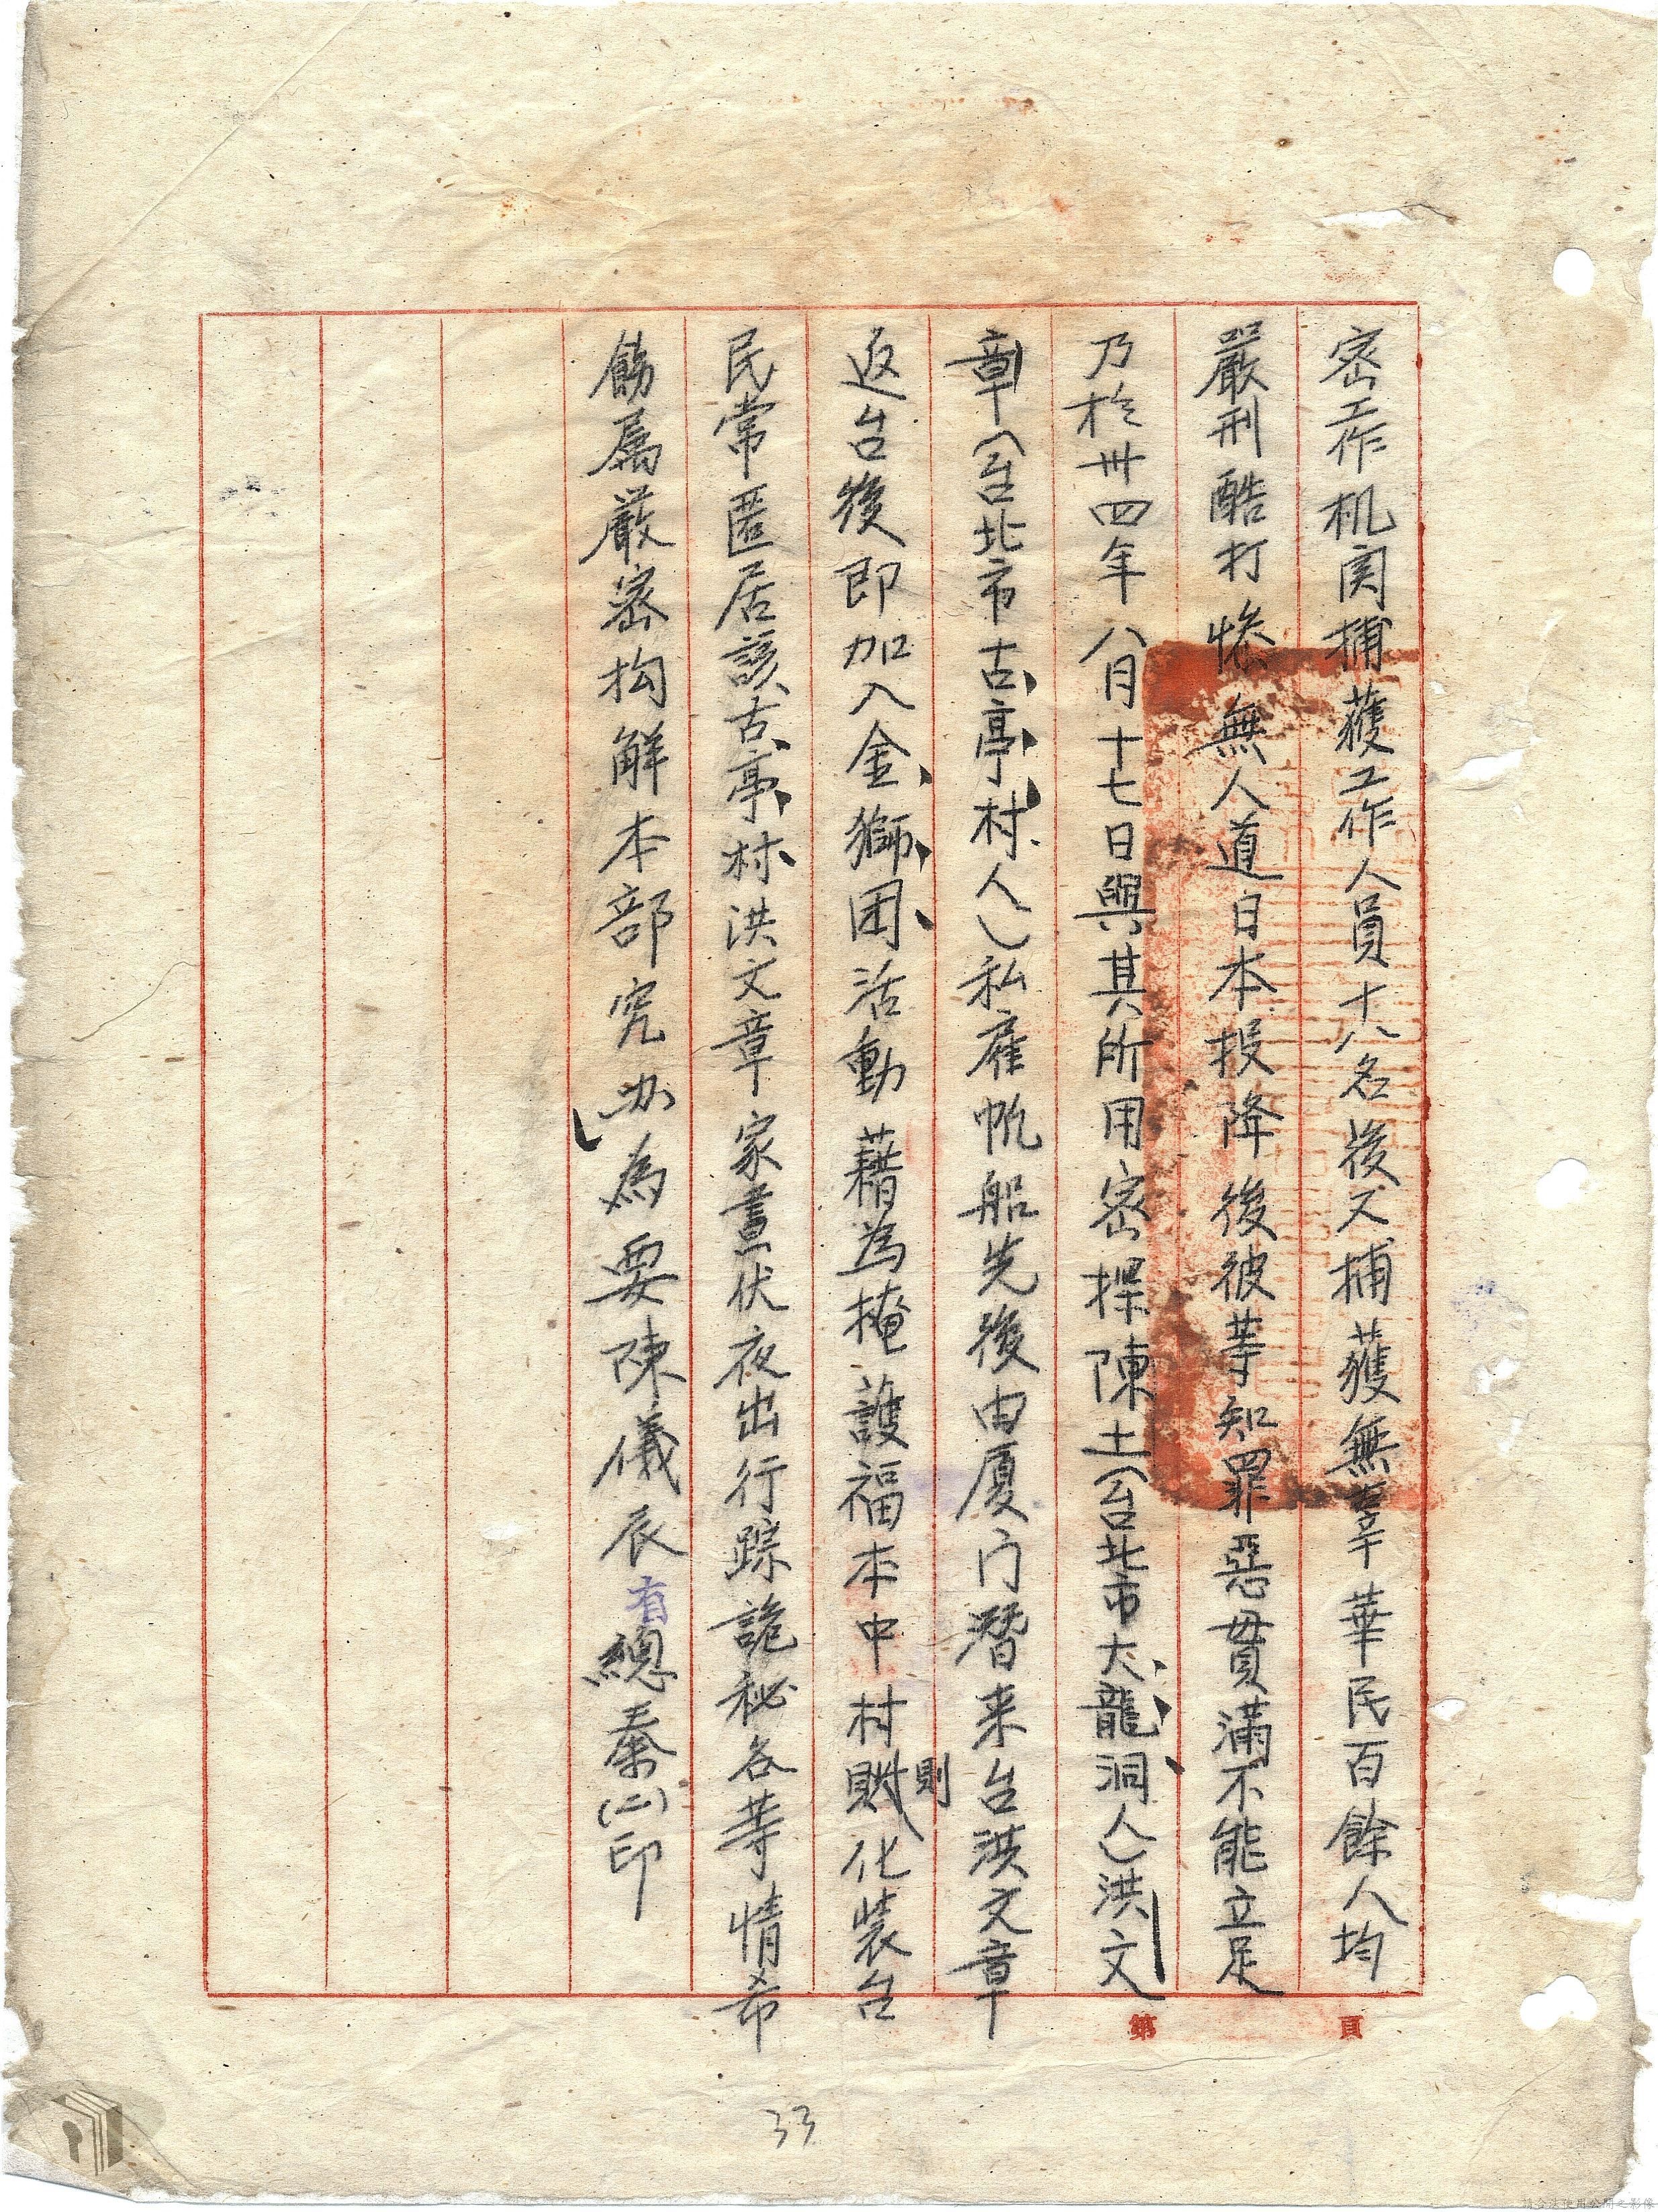 密工作机関捕獲工作人員十八名後又捕獲無辜華民百餘人均
嚴刑酷打惨無人道日本投降後彼等知罪惡貫滿不能立足
乃於卅四年八月十七日與其所用密探陳土(台北市大龍洞人)洪文
章(台北市古亭村人)私雇帆船先後由厦门潛来台洪文章
返台後即加入金獅团活動藉為掩護福本中村則化装台
民常匿居該古亭村洪文章家晝伏夜出行踪詭秘各等情希
飭屬嚴密拘解本部究办為要陳儀辰有總秦(二)印
第 頁
33